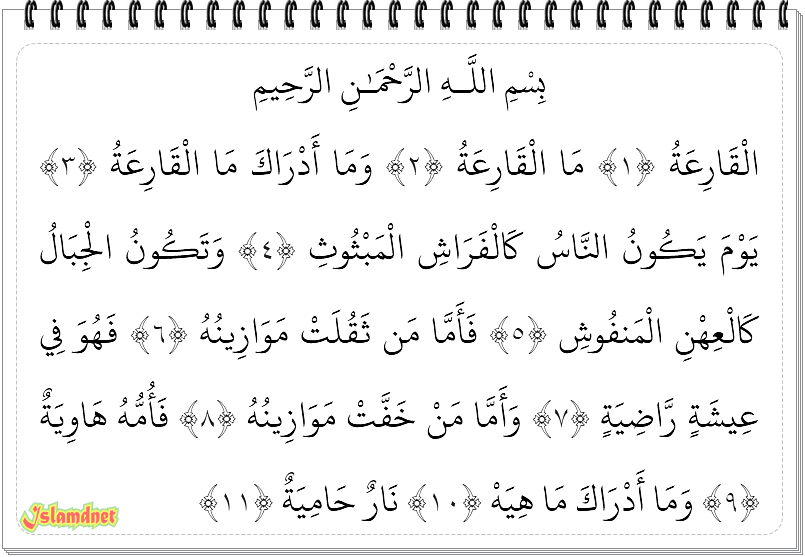 بِسْمِ اللَّـهِ الرَّحْمَـٰنِ الرَّحِيمِ
الْقَارِعَةُ ﴿١﴾ مَا الْقَارِعَةُ ﴿٢﴾ وَمَا أَدْرَاكَ مَا الْقَارِعَةُ ﴿٣﴾
يَوْمَ يَكُونُ النَّاسُ كَالْفَرَاشِ الْمَبْثُوثِ ﴿٤﴾ وَتَكُونُ الْجِبَالُ
كَالْعِهْنِ الْمَنفُوشِ ﴿٥﴾ فَأَمَّا مَن ثَقُلَتْ مَوَازِينُهُ ﴿٦﴾ فَهُوَ فِي
عِيشَةٍ رَّاضِيَةٍ ﴿٧﴾ وَأَمَّا مَنْ خَفَّتْ مَوَازِينُهُ ﴿٨﴾ فَأُمُّهُ هَاوِيَةٌ
﴿٩﴾ وَمَا أَدْرَاكَ مَا هِيَهْ ﴿١٠﴾ نَارٌ حَامِيَةٌ ﴿١١﴾
Islamdnet